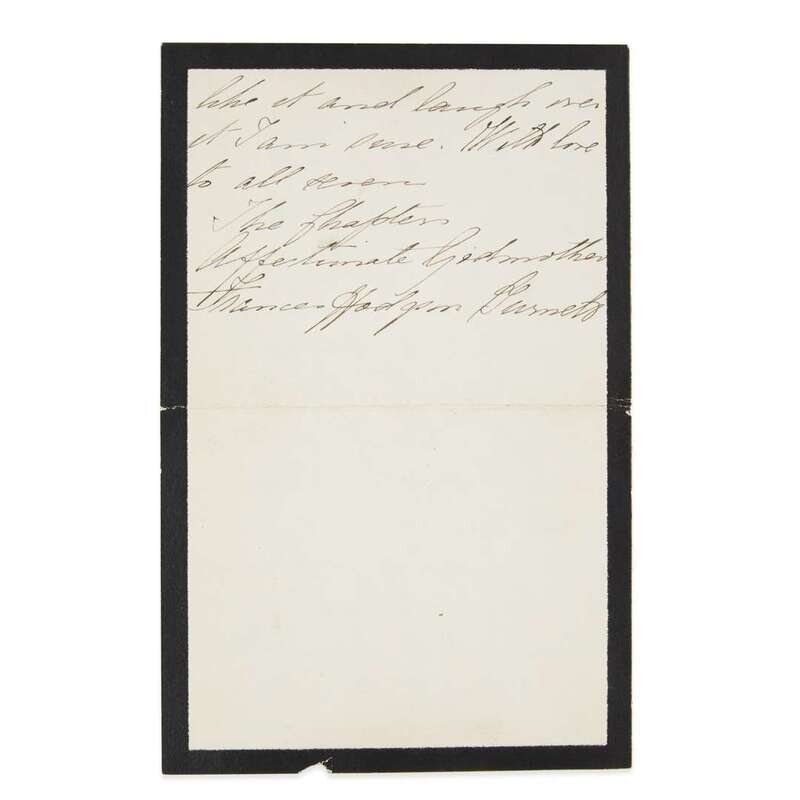 like it and laugh over
it I am sure. With love
to all seven
The Chapters
Affectionate Godmother
Frances Hodgson Burnett